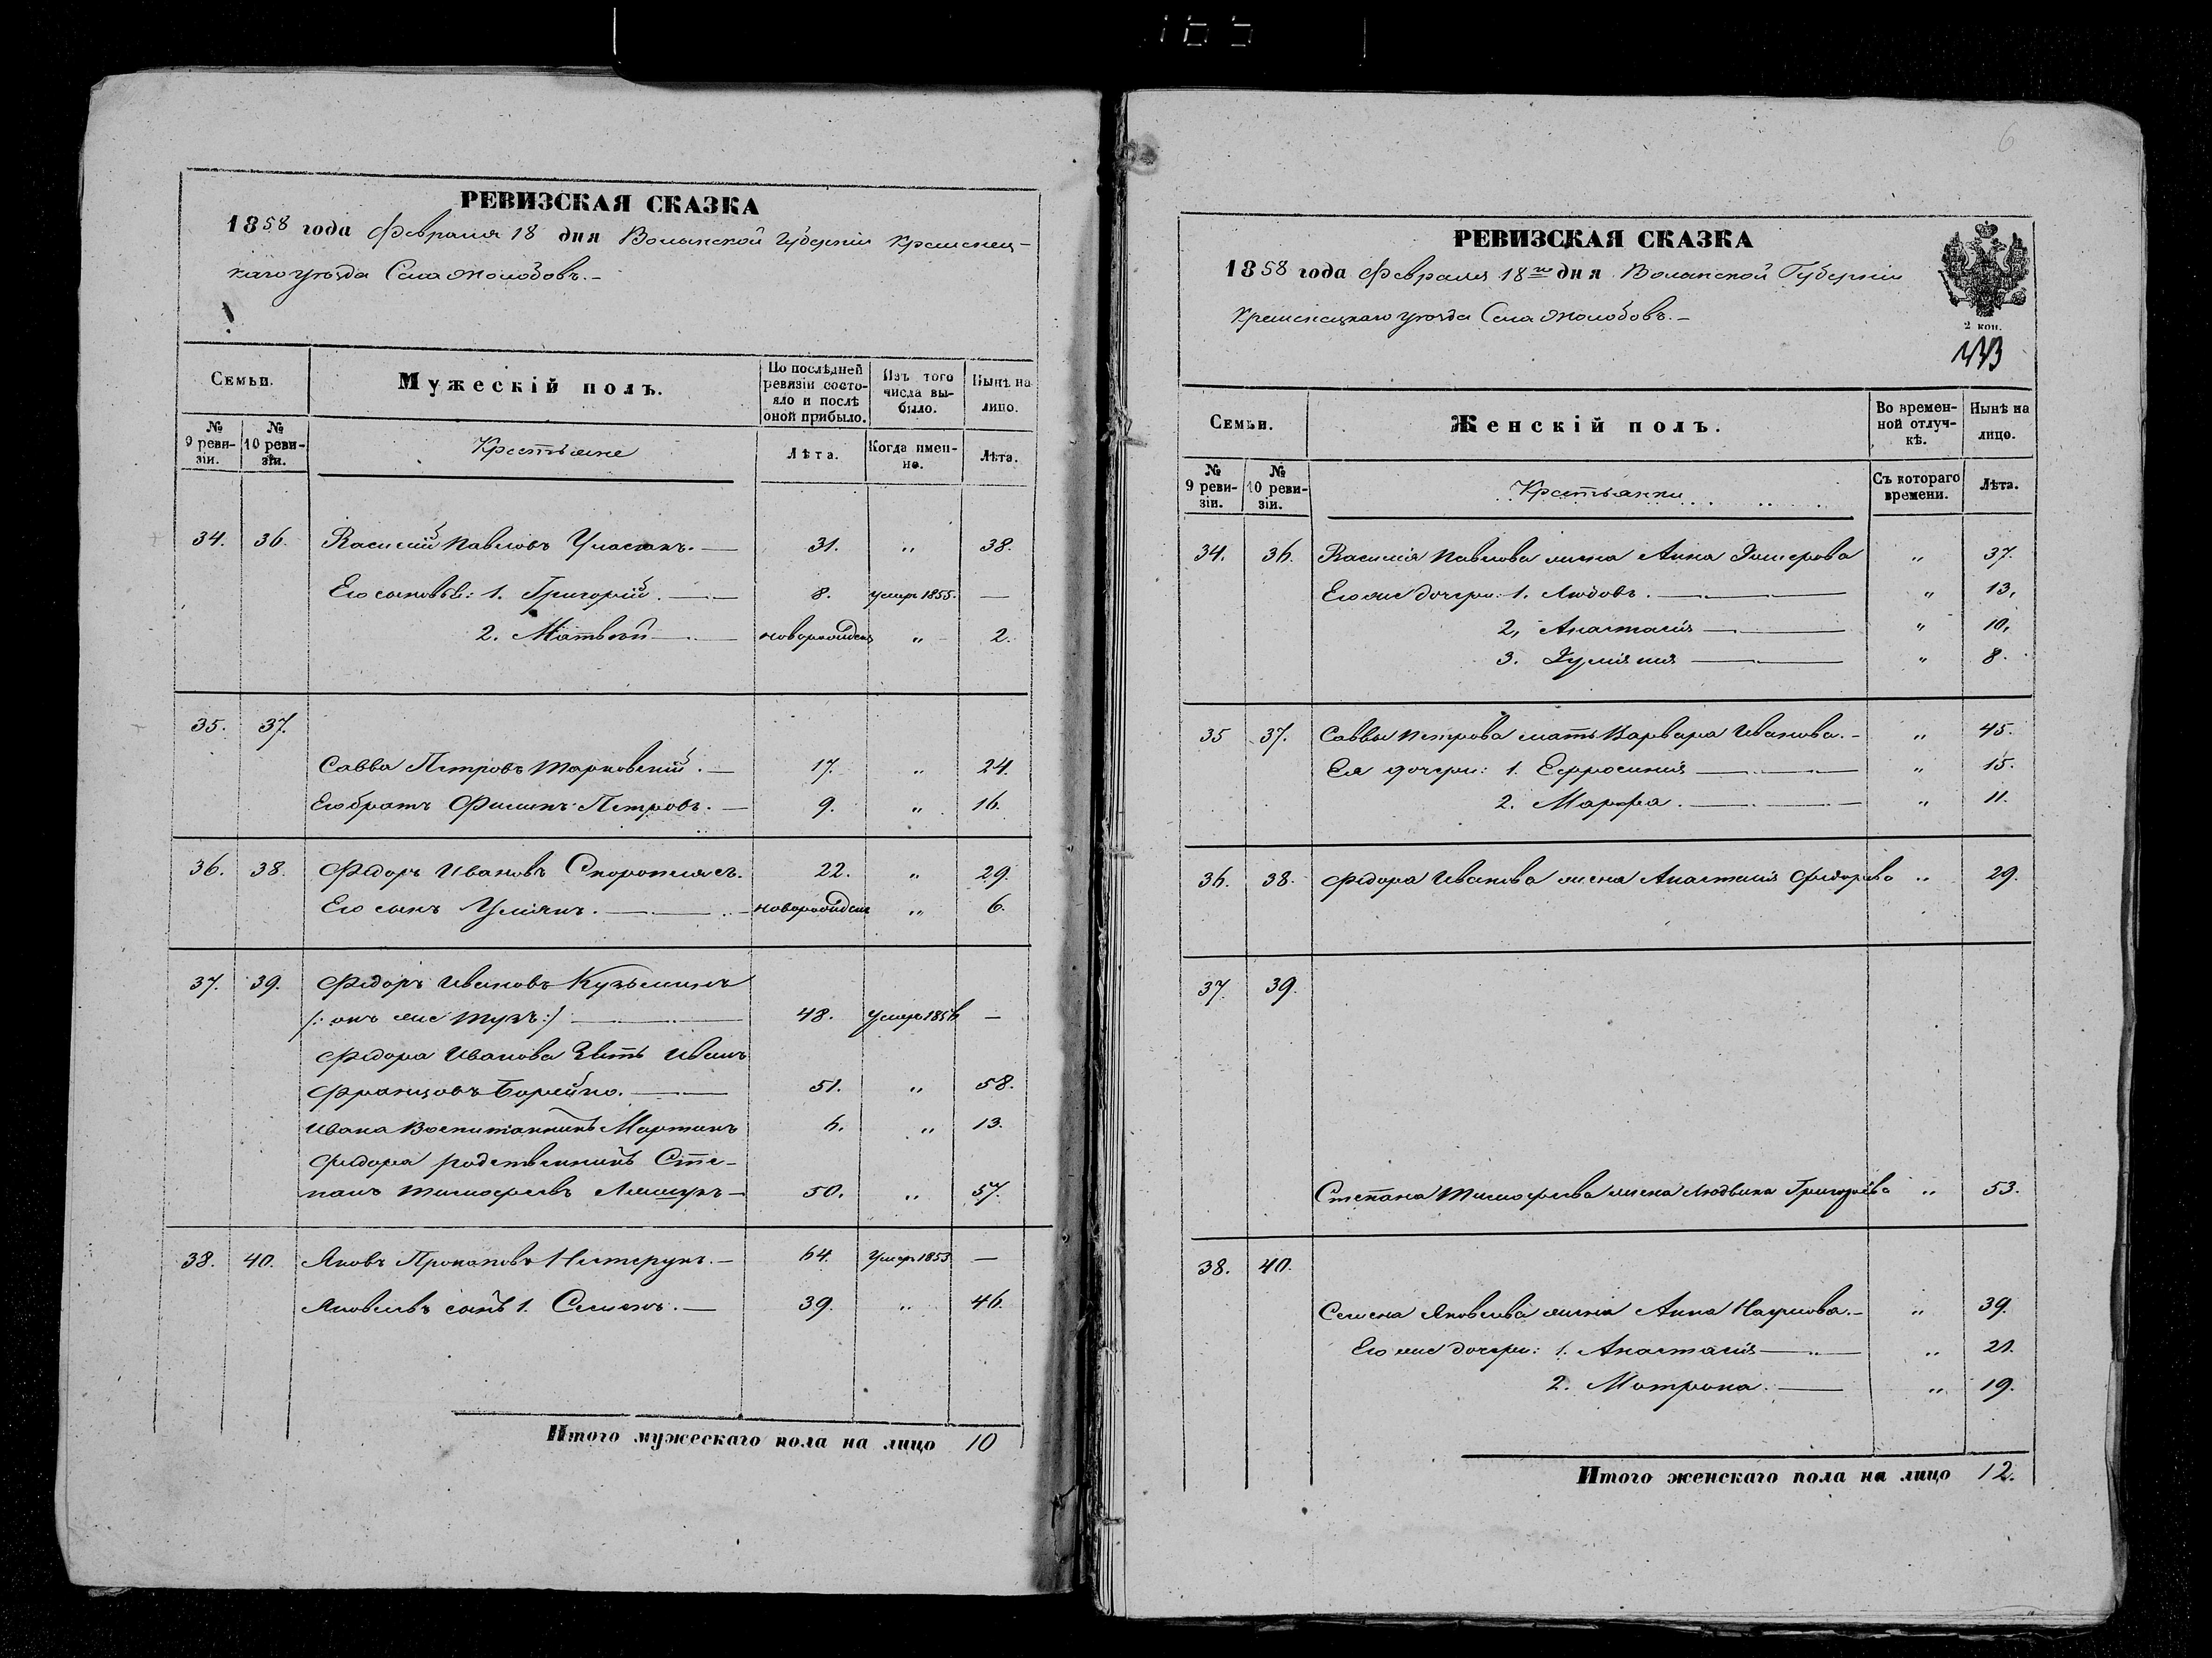 165
РЕВИЗСКАЯ СКАЗКА
1858 года Февраля 18 дня Волынской Губерніи Кременец-
каго уѣзда Села Жолобовъ.-
Семьи.
Мужескій полъ.
По послѣдней ревизіи состо-яло и послѣ оной прибыло.
Изъ того числа вы-было.
Нынѣ на лицо.
№ 9 реви-зіи.
№ 10 реви-зіи.
Крестьяне
Лѣта.
Когда имен-но.
Лѣта.
34. 36. Василій Павловъ 31. „ 38.
Его сыновья: 1. Григорій. 8. умеръ 1855. —
2. Матвѣй новорожденъ „ 2.
35. 37.
Савва Петровъ Марковскій. 17. „ 24.
Его братъ Филипъ Петровъ. 9. „ 16.
36. 38. Федоръ Ивановъ 22. „ 29.
Его сынъ Ульянъ. новорожденъ „ 6.
37. 39. Федоръ Ивановъ Кузьминъ
/: онъ же :/ 48. умеръ 1856 —
Федора Иванова Зять Иванъ
Францовъ Борейко. 51. „ 58.
Ивана Воспитанникъ Мартинъ 6. „ 13.
Федора родственникъ Сте-
панъ Тимофеевъ 50. „ 57.
38. 40. Яковъ Прокоповъ Нестерукъ. 64. Умеръ 1853 —
Яковлевъ сынъ 1. Семенъ. 39. „ 46.
Итого мужескаго пола на лицо 10
6
РЕВИЗСКАЯ СКАЗКА
1858 года Февраля 18го дня Волынской Губерніи
Кременецкаго уѣзда Села Жолобовъ.-
2 коп.
Семьи.
Женскій полъ.
Во времен-ной отлуч-кѣ.
Нынѣ на лицо.
№ 9 реви-зіи.
№ 10 реви-зіи.
Крестьянки
Съ котораго времени.
Лѣта.
34. 36. Василія Павлова жена Анна „ 37.
Его же дочери: 1. Любовь. „ 13.
2, Анастасія „ 10.
3. „ 8.
35 37. Саввы Петрова мать Варвара Иванова.- „ 45.
Ея дочери: 1. Ефросинія „ 15.
2. Марфа. „ 11.
36. 38. Федора Иванова жена Анастасія Федорова „ 29.
37. 39.
Степана Тимофеева жена Людвика Григорьева „ 53.
38. 40.
Семена Яковлева жена Анна Наумова.- „ 39.
Его же дочери: 1. Анастасія „ 21.
2. Матрона. „ 19.
Итого женскаго пола на лицо 12.